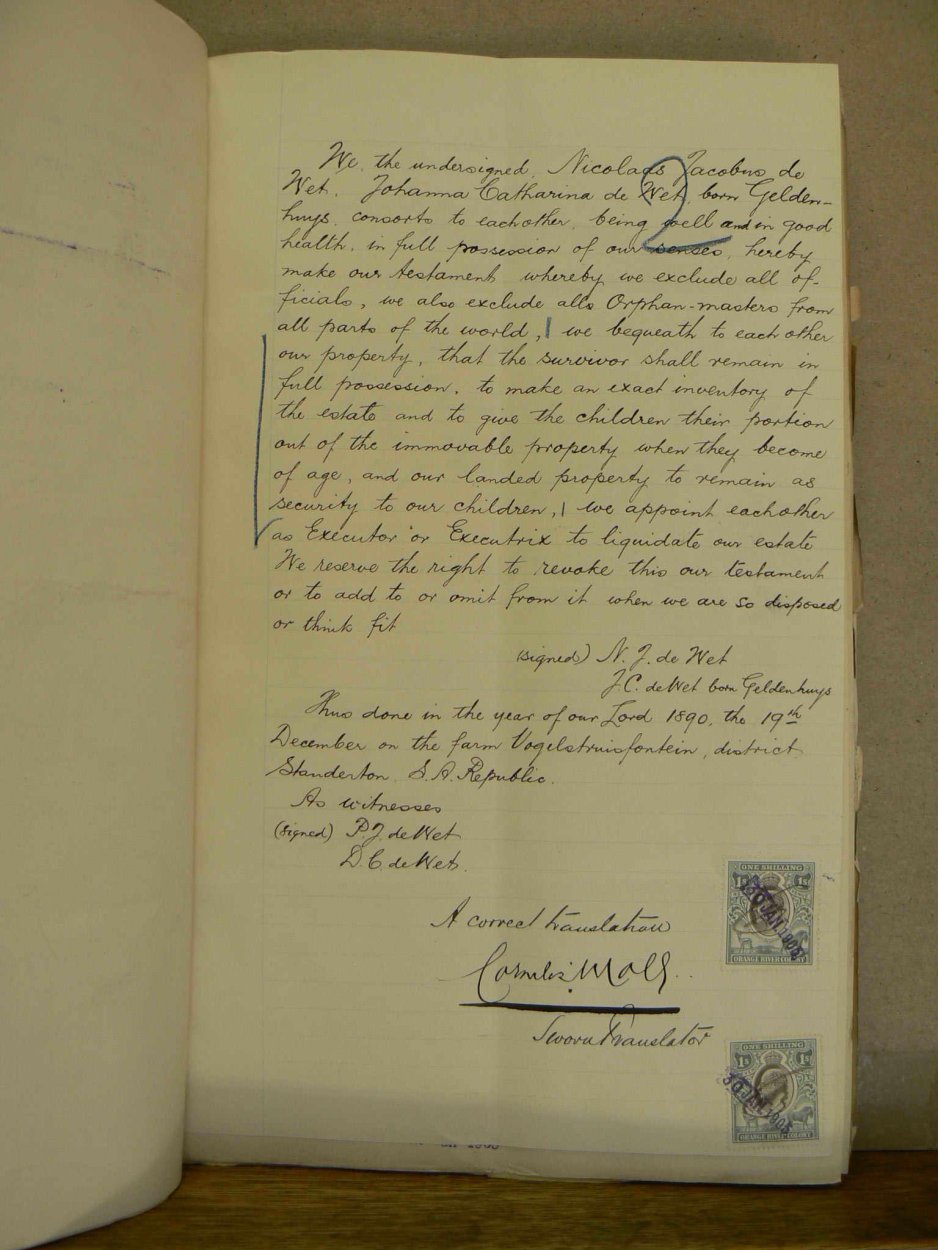 We, the undersigned, Nicolaas Jacobus de
Wet. Johanna Catharina de Wet, born Gelden-
huys, consorts to eachother, being well and in good
health, in full possession of our senses, hereby
make our testament whereby we exclude all of-
ficials, we also exclude alls Orphan-masters from
all parts of the world, we bequeath to each other
our property, that the survivor shall remain in
full possession, to make an exact inventory of
the estate and to give the children their portion
out of the immovable property when they become
of age, and our landed property to remain as
security to our children, we appoint eachother
as Executor or Executrix to liquidate our estate
We reserve the right to revoke this our testament
or to add to or omit from it when we are so disposed
or think fit
(signed) N. J. de Wet
J. C. de Wet born Geldenhuys
Thus done in the year of our Lord 1890, the 19th
December on the farm Vogelstruisfontein, district
Standerton, S. A. Republic.
As witnesses
(signed) P. J. de Wet
D. C. de Wet.
2
A correct translation
Cornelis Moll
Sworn Translator
ONE SHILLING
1s 1s
30 JAN 1905
ORANGE RIVER COLONY
ONE SHILLING
1s 1s
30 JAN 1905
ORANGE RIVER COLONY